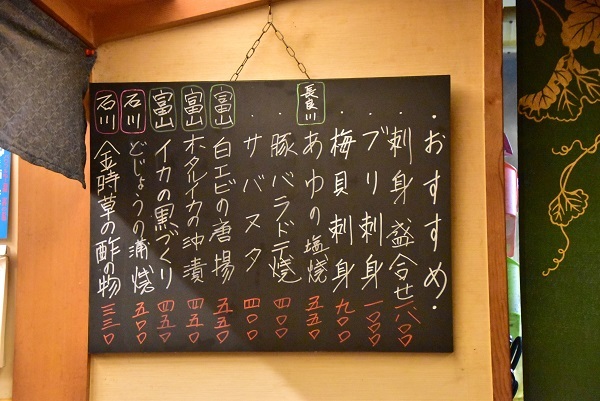 ・おすすめ・
刺身盛合せ 一八〇〇
・ブリ刺身 一〇〇〇
・梅貝刺身 九〇〇
長良川 あゆの塩焼 五五〇
・豚バラドテ焼 四〇〇
・サバヌタ 四〇〇
富山 白エビの唐揚 五五〇
富山 ホタルイカの沖漬 四五〇
富山 イカの黒づくり 四五〇
石川 どじょうの蒲焼 五〇〇
石川 金時草の酢の物 三三〇